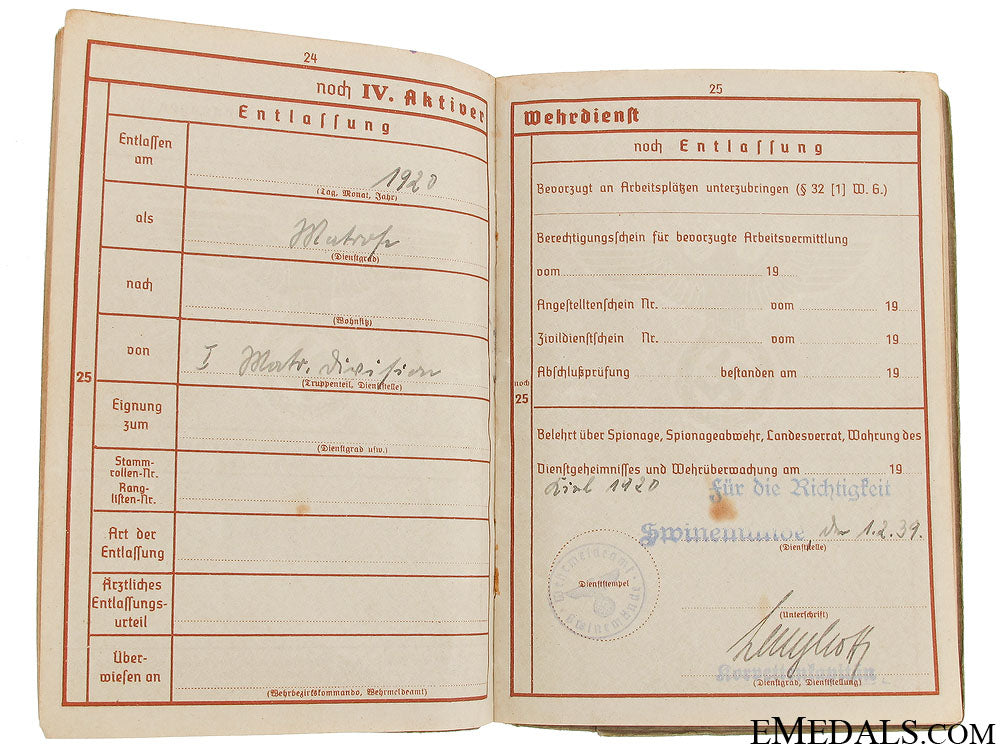 24
noch IV. Aktiver
Entlassung
Entlassen am
1920
(Tag, Monat, Jahr)
als
Matrose
(Dienstgrad)
nach
(Wohnsitz)
25
von
I Matr. Division
(Truppenteil, Dienststelle)
Eignung zum
(Dienstgrad usw.)
Stamm-
rollen-Nr.
Rang-
listen-Nr.
Art der
Entlassung
Ärztliches
Entlassungs-
urteil
Über-
wiesen an
(Wehrbezirkskommando, Wehrmeldeamt)
25
Wehrdienst
noch Entlassung
Bevorzugt an Arbeitsplätzen unterzubringen (§ 32 [1] W. G.)
Berechtigungsschein für bevorzugte Arbeitsvermittlung
vom 19
Angestelltenschein Nr. vom 19
Zivildienstschein Nr. vom 19
Abschlußprüfung bestanden am 19
noch
25
Belehrt über Spionage, Spionageabwehr, Landesverrat, Wahrung des
Dienstgeheimnisses und Wehrüberwachung am 19
Kiel 1920
Für die Richtigkeit
Swinemünde, den 1.2.39.
(Dienststelle)
Wehrmeldeamt
Dienststempel
Swinemünde
(Unterschrift)
Korvettenkapitän
(Dienstgrad, Dienststellung)
EMEDALS.COM